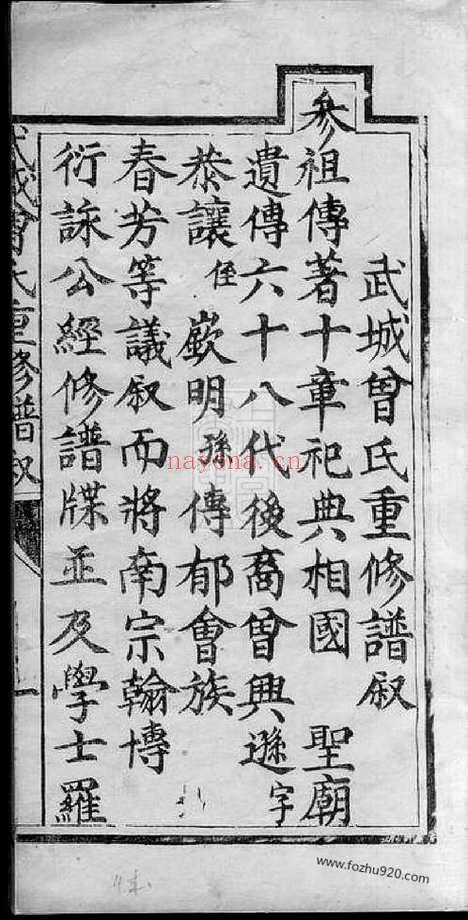 武城曾氏重修譜叙
參祖傳著十章祀典相國 聖廟
遺傳六十八代後裔曾興遜字
恭讓侄嶔明孫傳郁會族
春芳等議叙而將南宗翰博
衍詠公經修譜牒並及學士羅
武城曾氏重修譜叙
一
nayona.cn
www.fozhu920.com